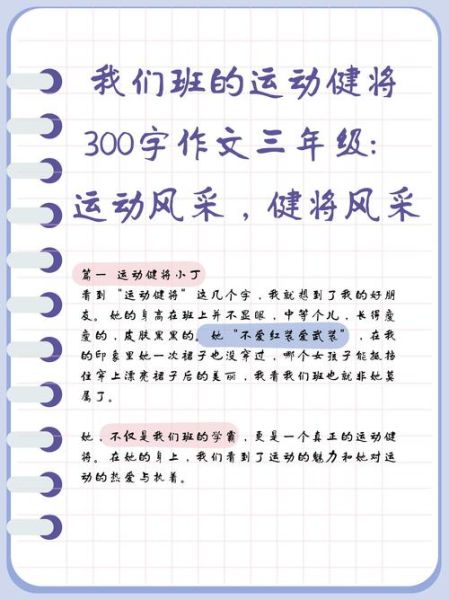 我们班的运动健将
300字作文三年级:
运动风采，健将风采
篇一 运动健将小丁
看到“运动健将”这几个字，我就想到了我的好朋
友。她的身高在班上并不显眼，中等个儿，长得瘦
瘦的，皮肤黑黑的。她“不爱红装爱武装”，在我
的印象里她一次裙子也没穿过，哪个女孩子能抵挡
住穿上漂亮裙子后的美丽，我看我们班也就非她莫
属了。
她，不仅是我们班的学霸，更是一个真正的运动健
将。在她的身上，我们看到了运动的魅力和她对运
动的热爱与执着。